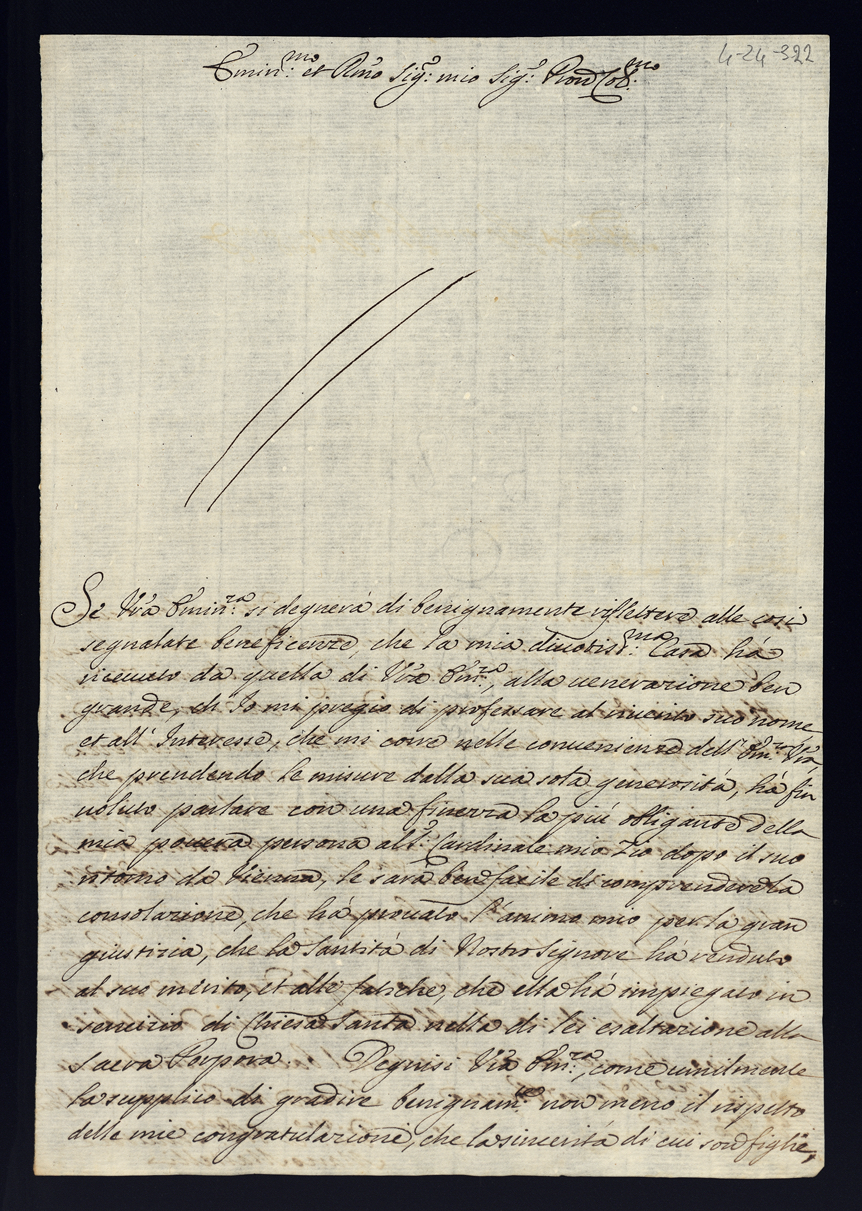 4-24-322
Emin.mo et Rmo Sig.r mio Sig.r Pron Col.mo
Se Vra Emin.za si degnerà di benignamente riflettere alle così
segnalate beneficenze, che la mia diuotis.ma Casa hà
riceuuto da quella di Vra Em.za, alla uenerazione ben
grande, ch'Io mi pregio di professare al riuerito suo nome
et all'Interesse, che mi corre nelle conuenienze dell'Em.za Vra,
che prendendo le misure dalla sua sola generosità, hà fin
uoluto parlare con una finezza la più obligante della
mia pouera persona all'... Cardinale mio Zio dopo il suo
ritorno da Vienna, le sarà ben facile di comprendere la
consolazione, che hà prouato l'animo mio per la gran
giustizia, che la Santità di Nostro Signore hà renduto
al suo merito, et alle fatiche, che ella hà impiegato in
seruizio di Chiesa Santa nella di lei esaltazione alla
Sacra Porpora. Degnisi Vra Em.za, come umilmente
la supplico di gradire benignam.te non meno il rispetto
delle mie congratulazione, che la sincerità di cui son figlie,